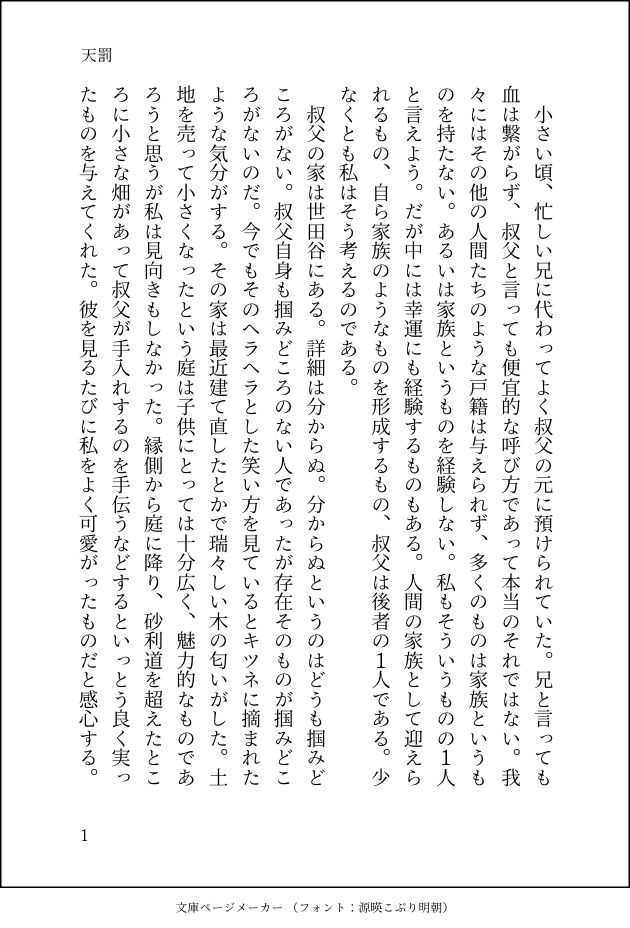 天罰
　小さい頃、忙しい兄に代わってよく叔父の元に預けられていた。兄と言っても
血は繋がらず、叔父と言っても便宜的な呼び方であって本当のそれではない。我
々にはその他の人間たちのような戸籍は与えられず、多くのものは家族というも
のを持たない。あるいは家族というものを経験しない。私もそういうものの1人
と言えよう。だが中には幸運にも経験するものもある。人間の家族として迎えら
れるもの、自ら家族のようなものを形成するもの、叔父は後者の1人である。少
なくとも私はそう考えるのである。
　叔父の家は世田谷にある。詳細は分からぬ。分からぬというのはどうも掴みど
ころがない。叔父自身も掴みどころのない人であったが存在そのものが掴みどこ
ろがないのだ。今でもそのヘラヘラとした笑い方を見ているとキツネに摘まれた
ような気分がする。その家は最近建て直したとかで瑞々しい木の匂いがした。土
地を売って小さくなったという庭は子供にとっては十分広く、魅力的なものであ
ろうと思うが私は見向きもしなかった。縁側から庭に降り、砂利道を超えたとこ
ろに小さな畑があって叔父が手入れするのを手伝うなどするといっとう良く実っ
たものを与えてくれた。彼を見るたびに私をよく可愛がったものだと感心する。
1
文庫ページメーカー（フォント：源暎こぶり明朝）